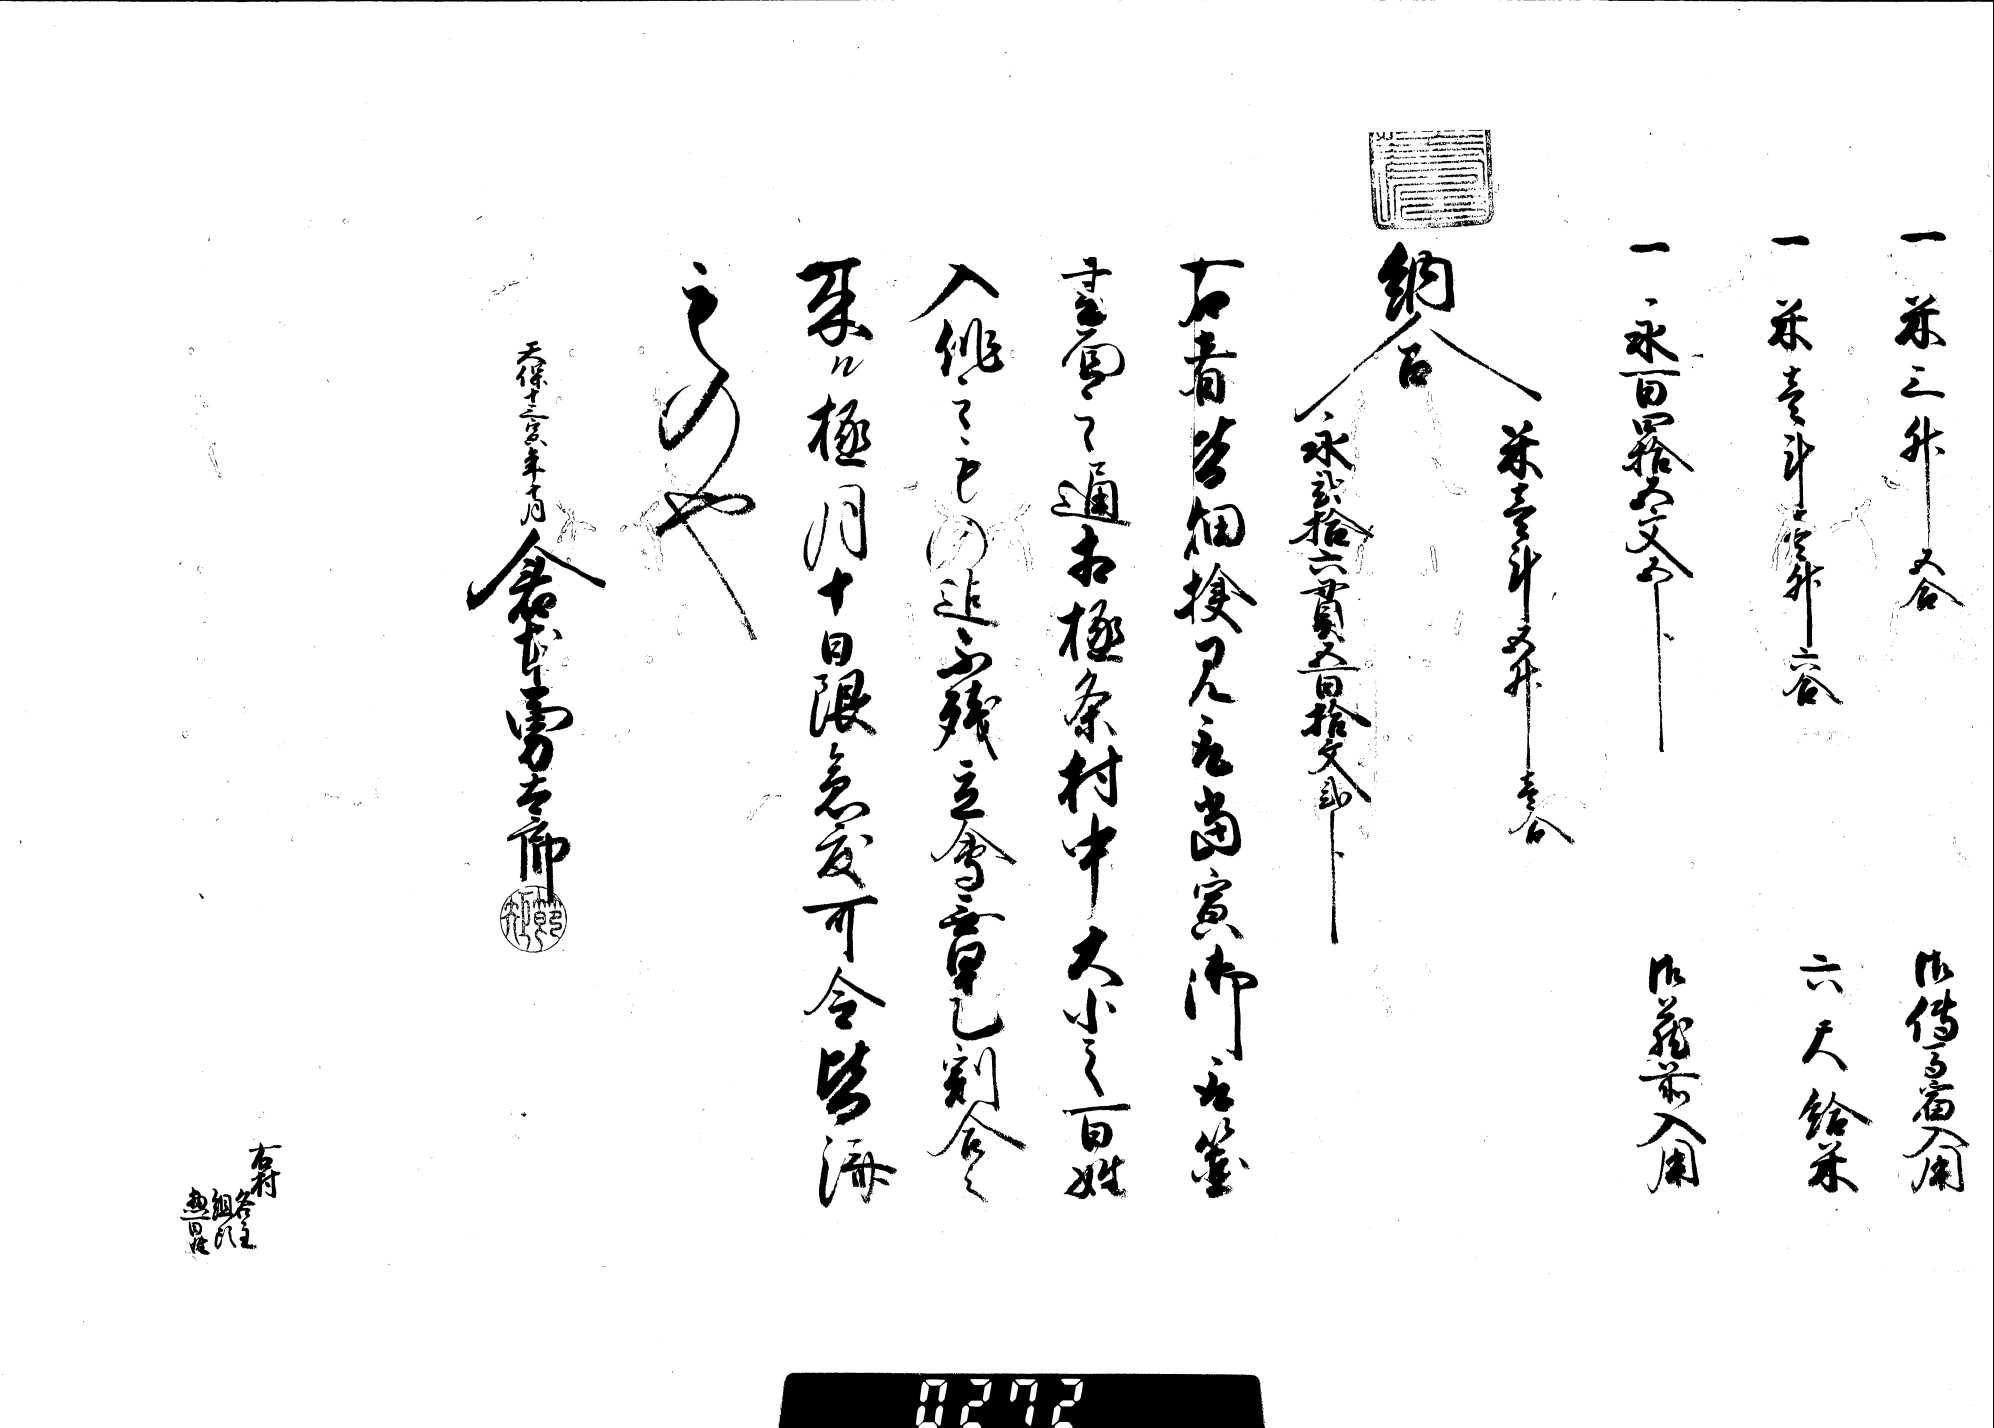 一 米三升五合 御傳馬宿入用
一 米壱斗壱升六合 六尺給米
一 永百四拾五文五分 御蔵前入用
納合
米壱斗五升壱合
永貳拾六貫五百拾文貳分
右者皆畑検見取當寅御取箇
書面之通相極条村中大小之百姓
入作之もの迄不残立會無甲乙割合之
来ル極月十日限急度可令皆済
ものや
天保十三寅年十月
右村
名主
組頭
惣百姓
0272